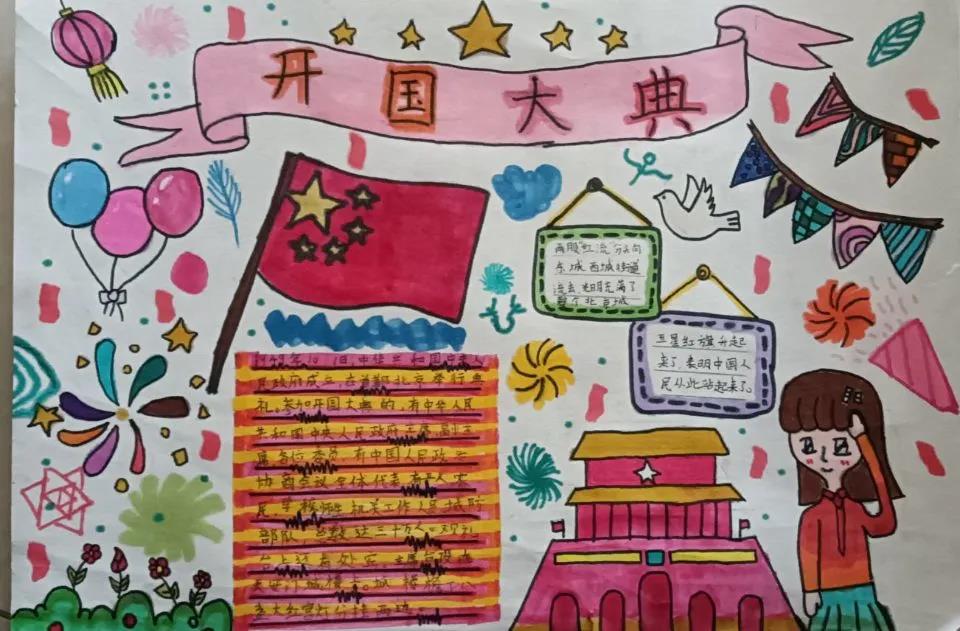 开国大典
两股"红流"分头向
东城、西城街道
流去,光明充满了
整个北京城
五星红旗升起
来了,表明中国人
民从此站起来了。
1949年10月1日,中华人民共和国中央人
民政府成立,在首都北京举行典
礼。参加开国大典的,有中华人民
共和国中央人民政府主席、副主
席、各位委员,有中国人民政治
协商会议全体代表,有工人、农
民、学校师生、机关工作人员、城防
部队,总数达三十万人。观礼
台上